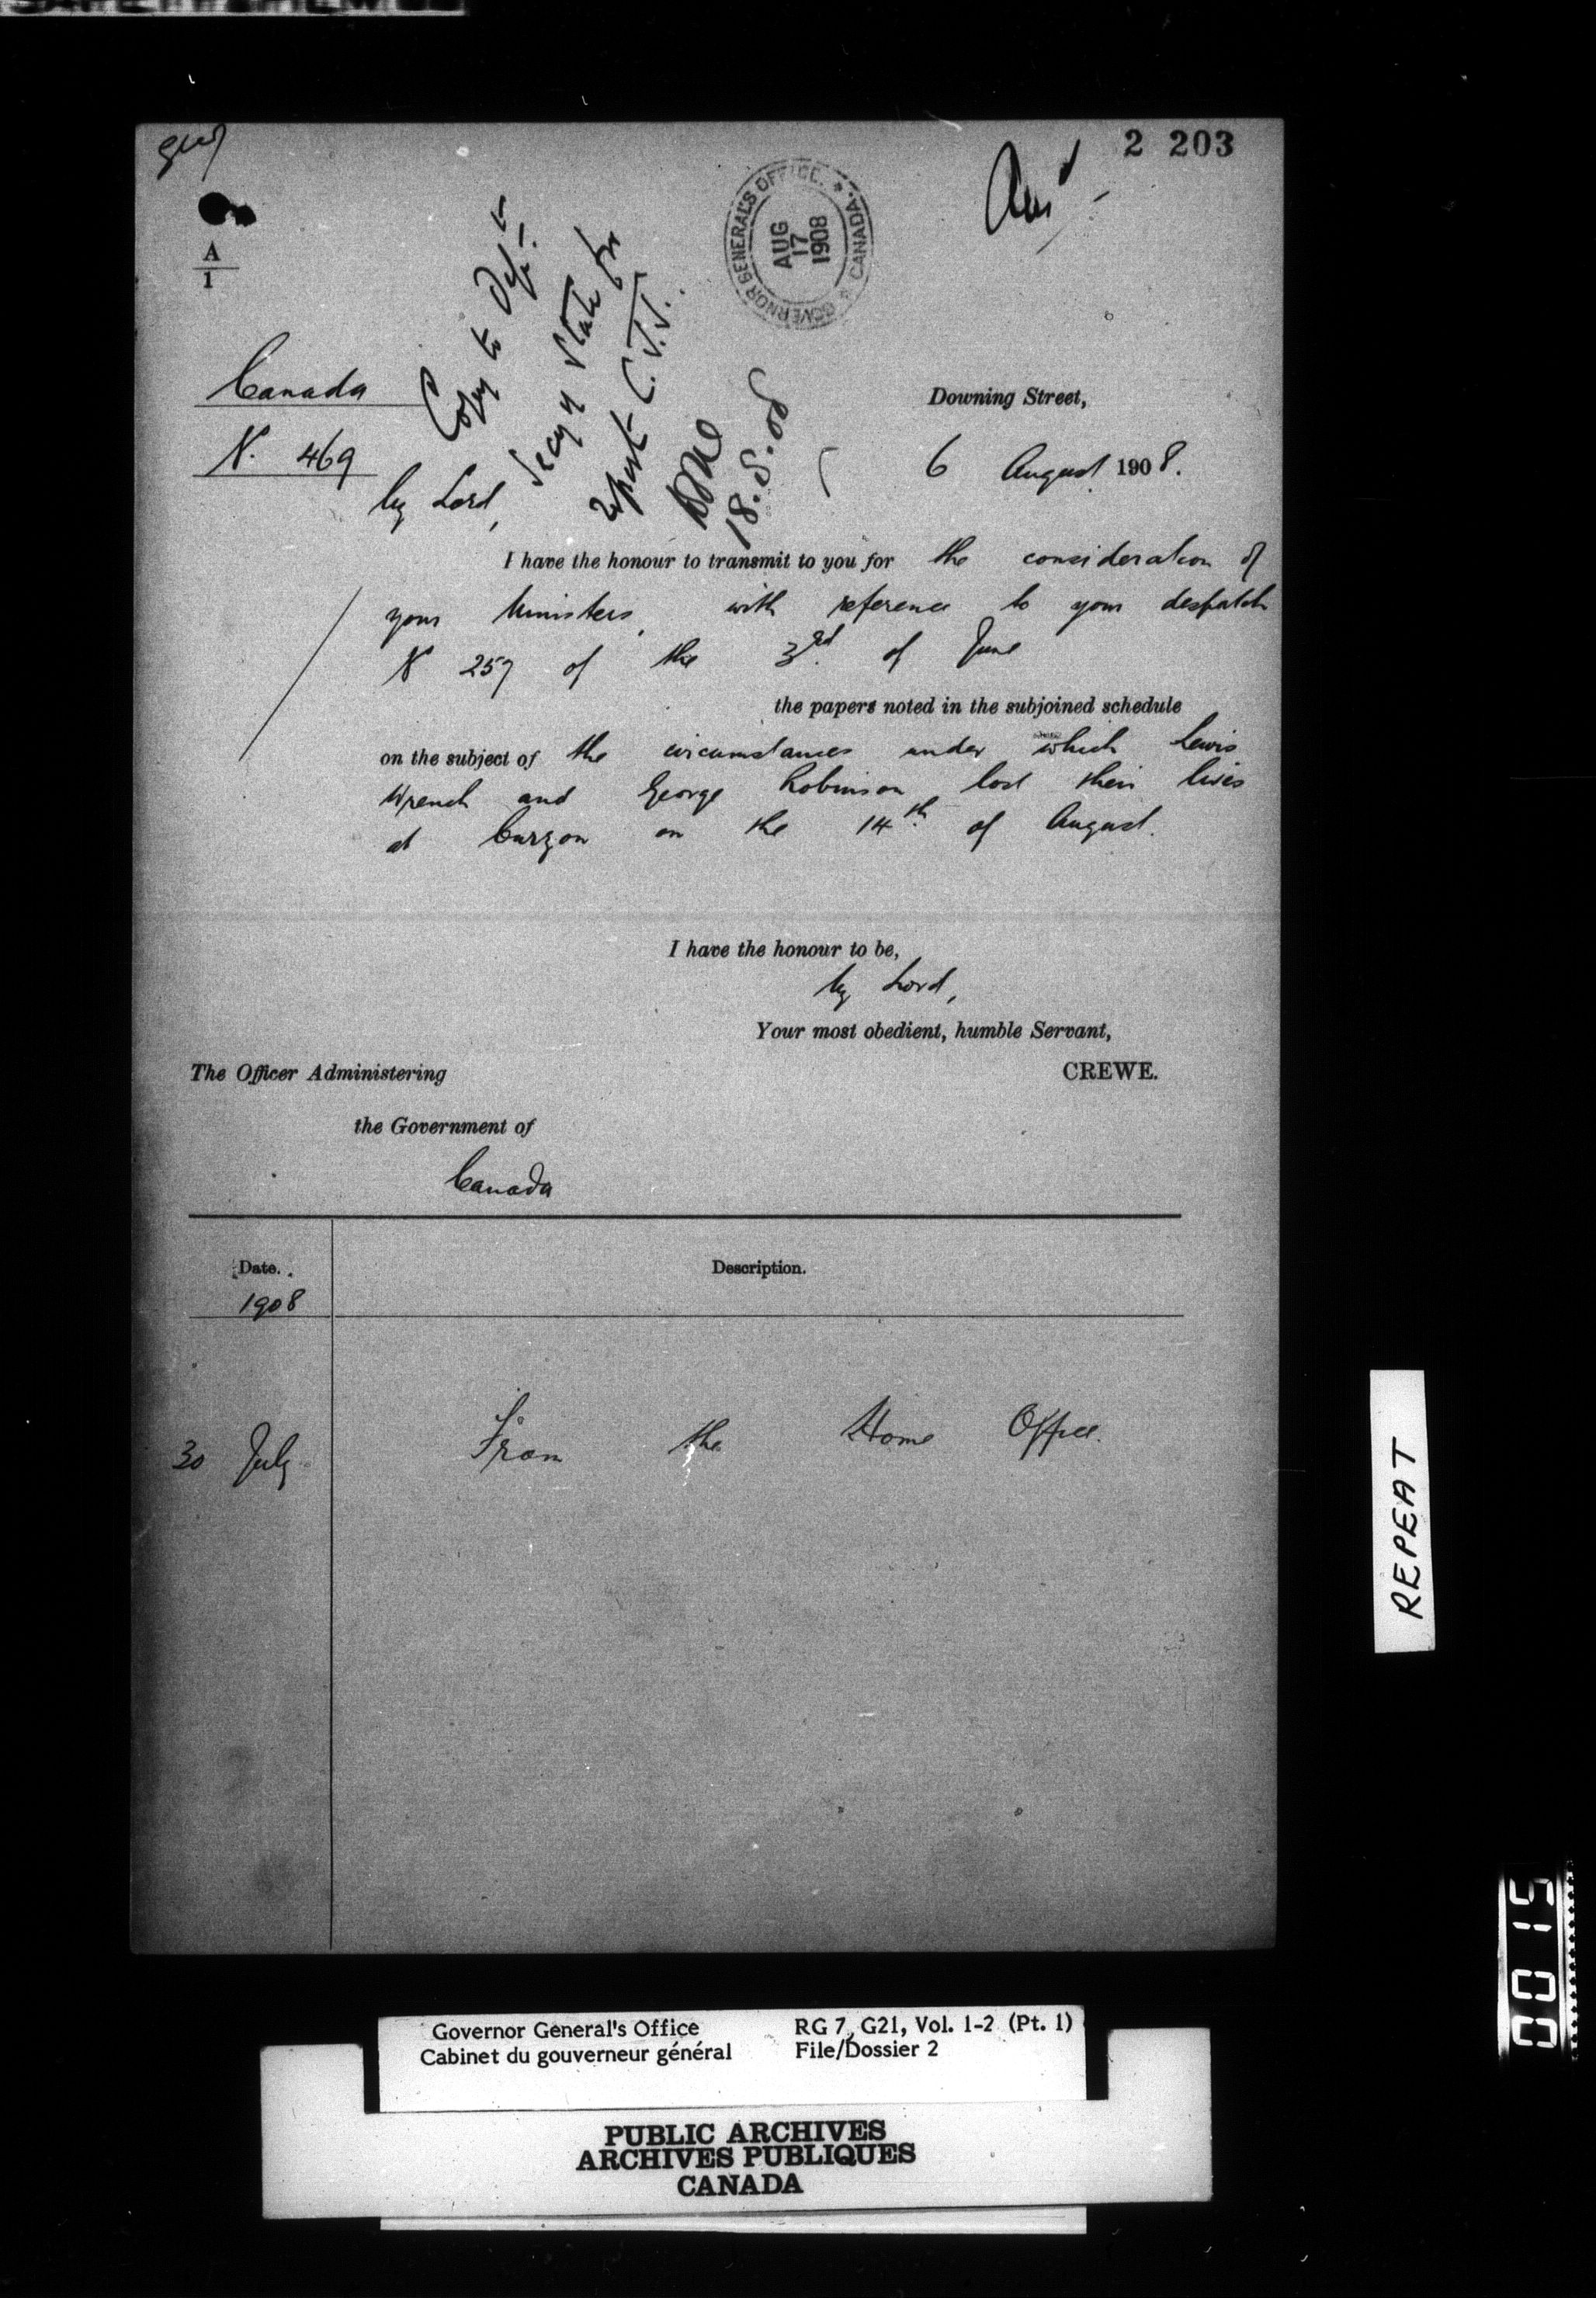 2 203
GOVERNOR GENERAL'S OFFICE. * CANADA. *
AUG
17
1908
A
1
Copy to Dept.
Secy of State for
report C.J.J.
18.8.08
Canada
Nº 469
Downing Street,
6 August 1908.
My Lord,
I have the honour to transmit to you for the consideration of
your Ministers, with reference to your despatch
Nº 257 of the 3rd. of June
the papers noted in the subjoined schedule
on the subject of the circumstances under which Lewis
Wrench and George Robinson lost their lives
at Curzon on the 14th. of August.
I have the honour to be,
My Lord,
Your most obedient, humble Servant,
CREWE.
The Officer Administering
the Government of
Canada
Date. Description.
1908
30 July From the Home Office.
REPEAT
0015
Governor General's Office RG 7, G21, Vol. 1-2 (Pt. 1)
Cabinet du gouverneur général File/Dossier 2
PUBLIC ARCHIVES
ARCHIVES PUBLIQUES
CANADA